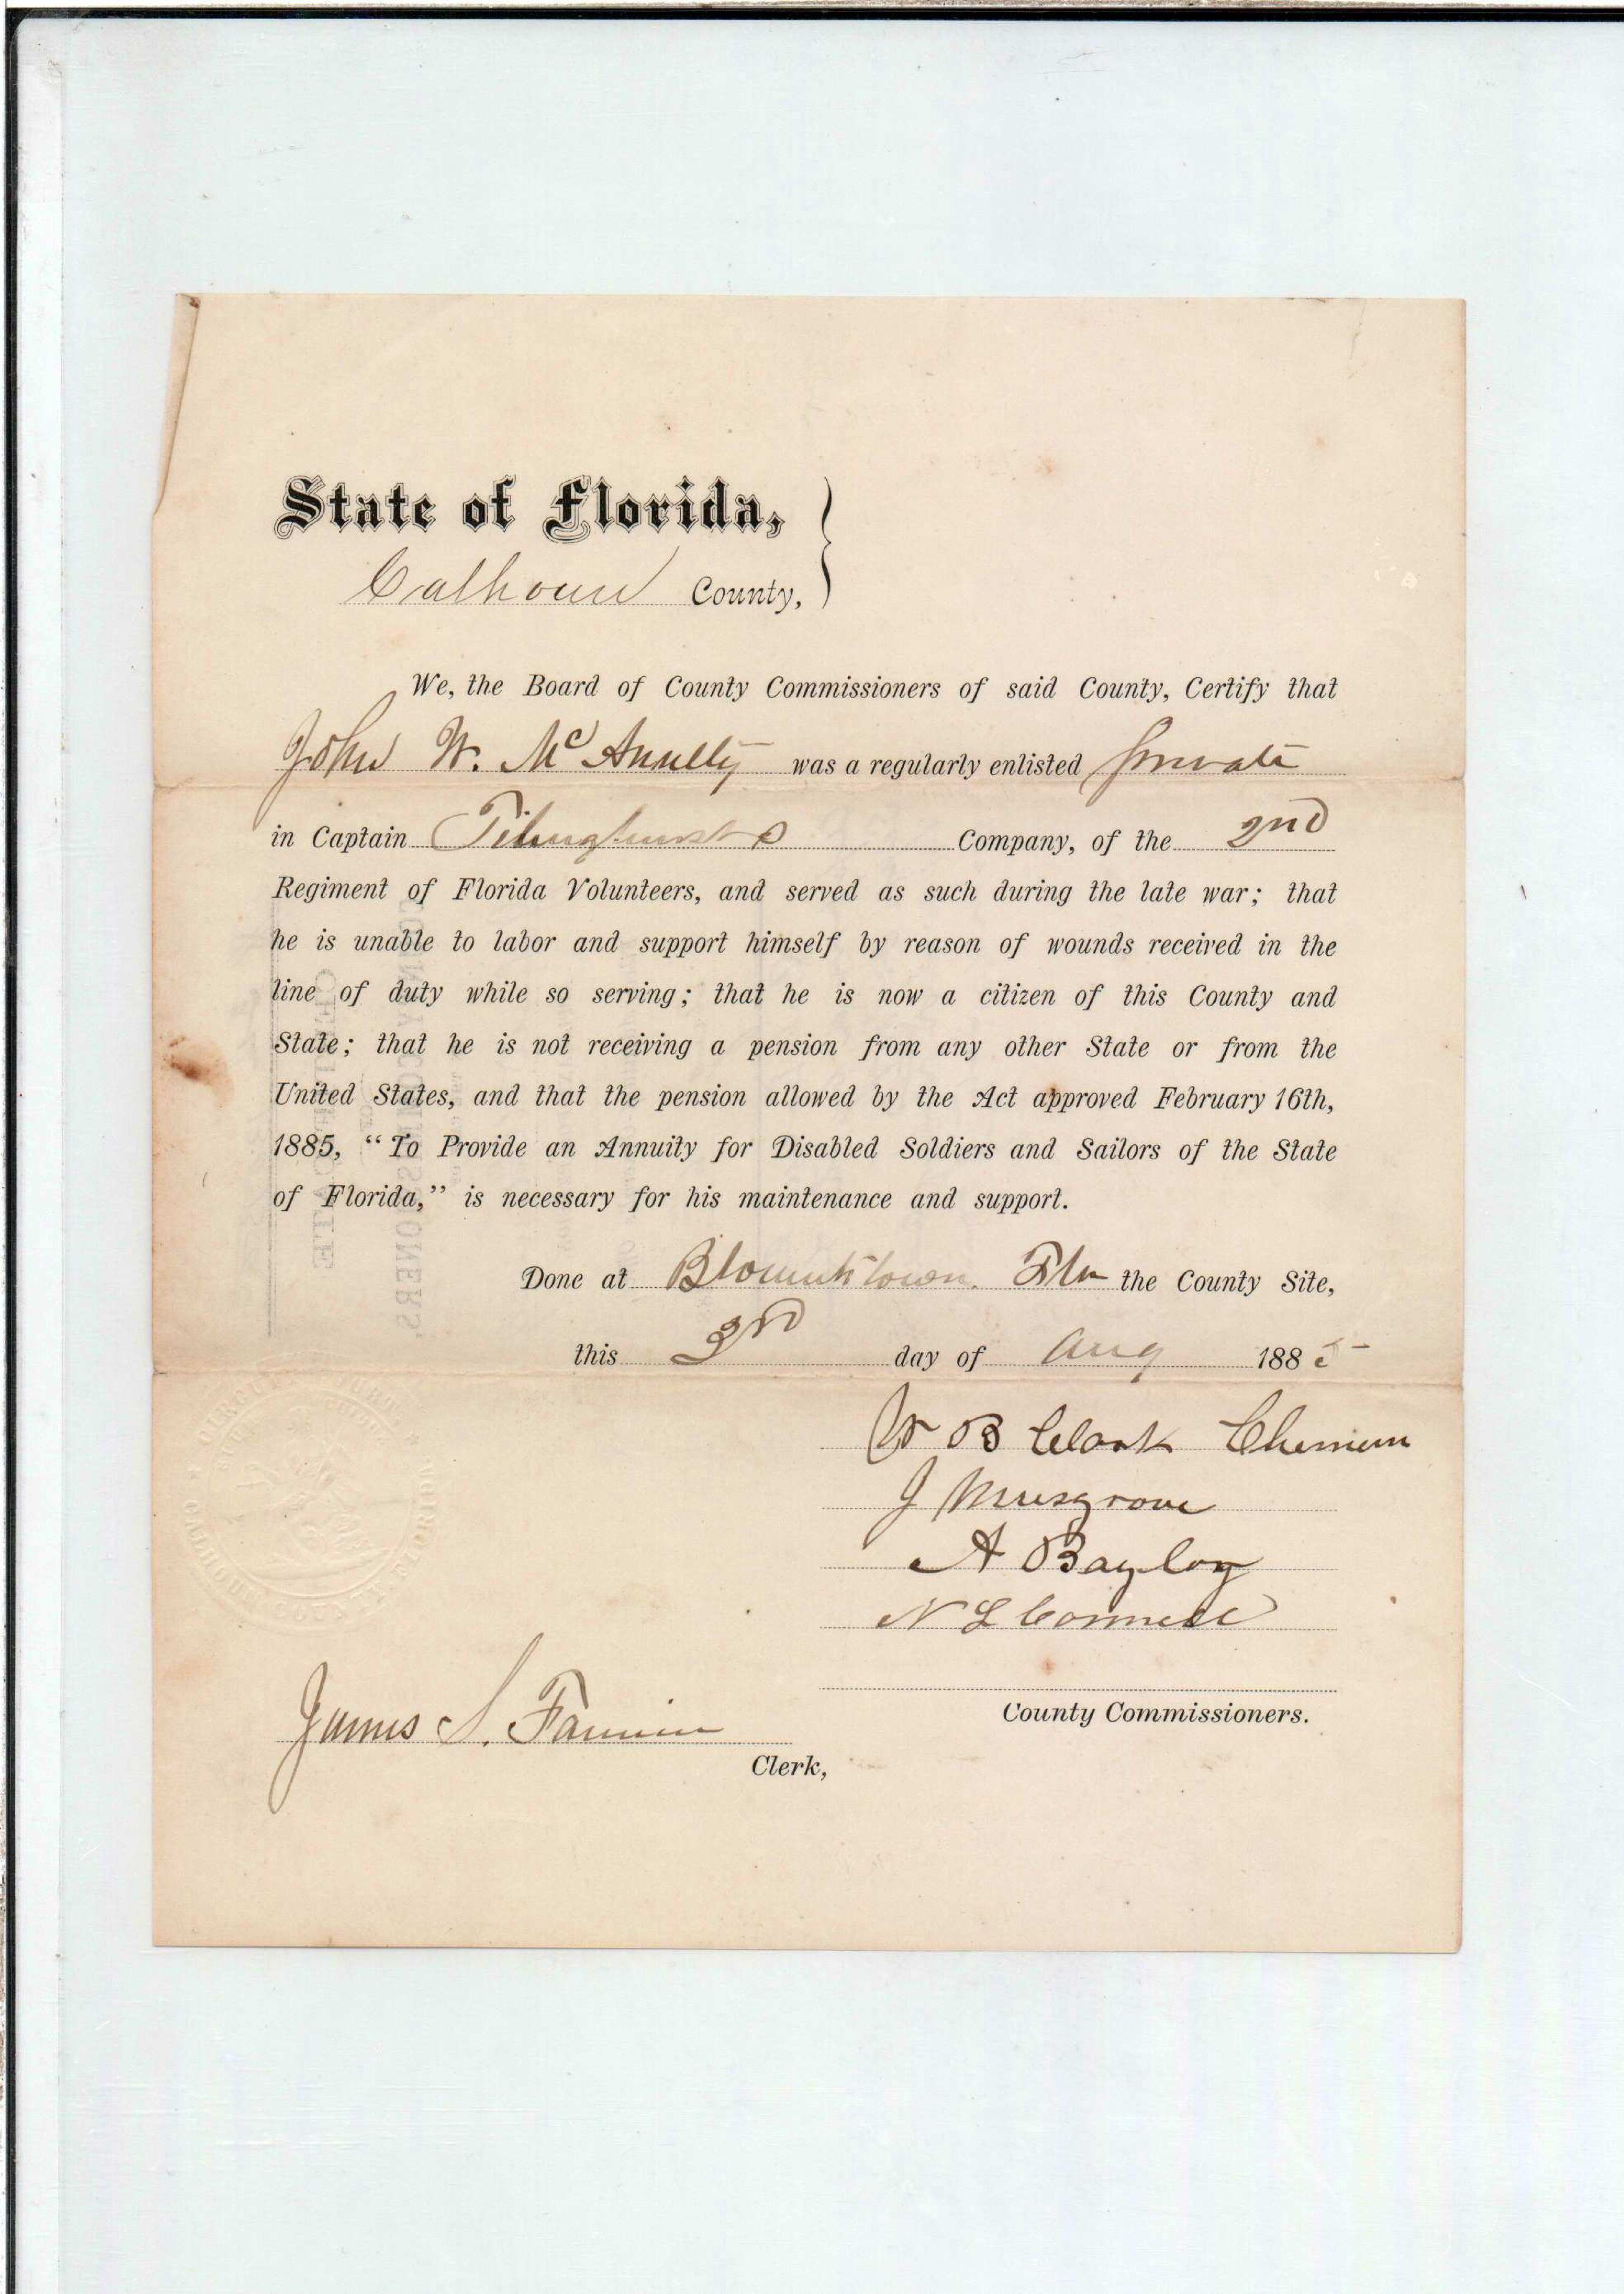 State of Florida,
Calhoun County,
We, the Board of County Commissioners of said County, Certify that
John W. McAnulty was a regularly enlisted private
in Captain Tilinghursts Company, of the 2nd
Regiment of Florida Volunteers, and served as such during the late war; that
he is unable to labor and support himself by reason of wounds received in the
line of duty while so serving; that he is now a citizen of this County and
State; that he is not receiving a pension from any other State or from the
United States, and that the pension allowed by the Act approved February 16th,
1885, "To Provide an Annuity for Disabled Soldiers and Sailors of the State
of Florida," is necessary for his maintenance and support.
Done at Blountstown Fla the County Site,
this 3rd day of Aug 1885
W B Clark
J Musgrove
A Bayloy
N L Connell
County Commissioners.
James S. Fannin
Clerk,